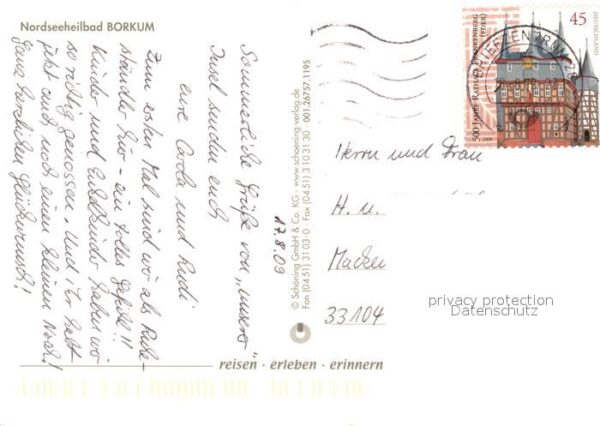 Nordseeheilbad BORKUM
Sommerliche Grüße von „unserer"
Insel senden euch
eure Carola und Rudi
Zum ersten Mal sind wir als Ruhe-
ständler hier - ein tolles Gefühl!!
Kinder und Enkelkinder haben wir
so richtig genossen. Und ihr habt
jetzt auch noch einen kleinen Noah!
Ganz herzlichen Glückwunsch!
17.8.09
© Schöning GmbH & Co. KG · www.schoening-verlag.de
Fon (0451) 31 03-0 · Fax (0451) 3 10 31 30 001.26757.1195
reisen · erleben · erinnern
45
DEUTSCHLAND
500 JAHRE RATHAUS FRANKENBERG
(EDER)
BRIEFZENTRUM
Herrn und Frau
H. u.
33104
privacy protection
Datenschutz